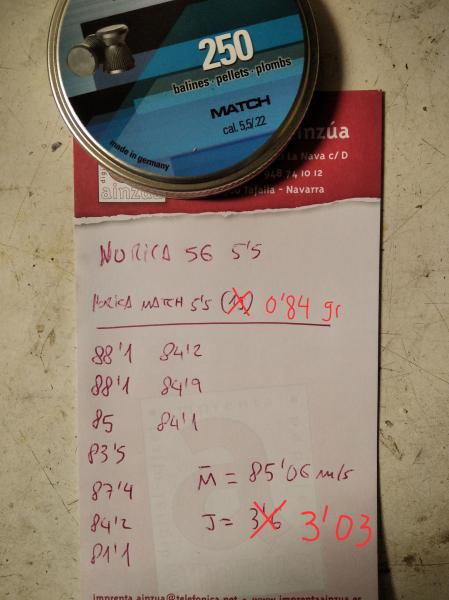 250
balines · pellets · plombs
MATCH
cal. 5,5/.22
made in germany
ainzúa
La Nava c/D
948 74 10 12
Tafalla - Navarra
ainzúa
NORICA 56 5'5
NORICA MATCH 5'5 0'84 gr
88'1 84'2
88'1 84'9
85 84'1
83'5
87'4
84'2
81'1
M = 85'06 m/s
J = 3'6 3'03
imprenta.ainzua@telefonica.net - www.imprentaainzua.es